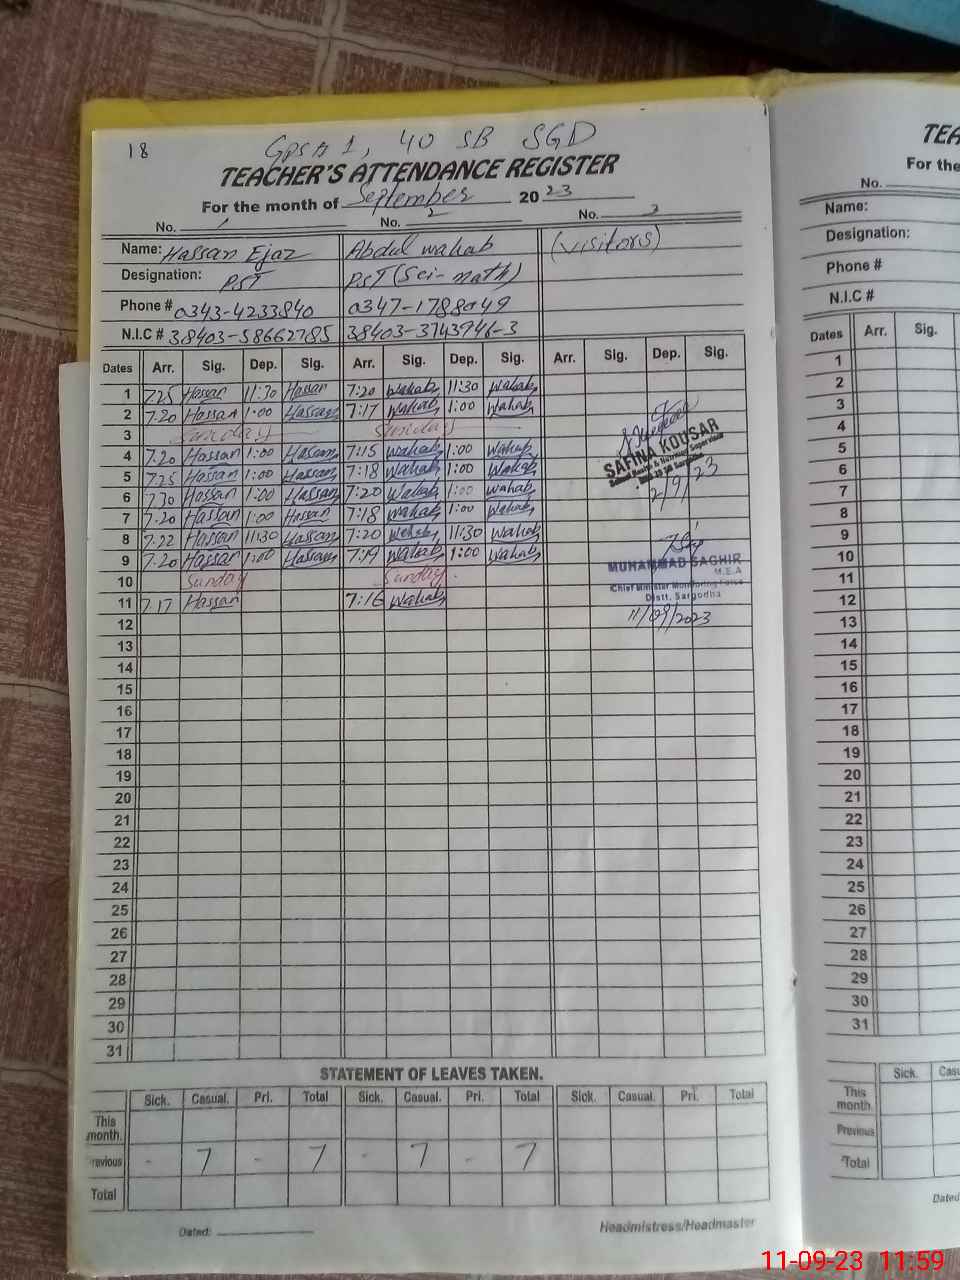 18
GPS# 1, 40 SB SGD
TEACHER'S ATTENDANCE REGISTER
For the month of September 2023
No. 1 No. 2 No. 3
Name: Hassan Ejaz Abdul wahab (visitors)
Designation: PST PST (Sci-math)
Phone # 0343-4233840
N.I.C # 38403-3743946-3
Dates Arr. Sig. Dep. Sig. Arr. Sig. Dep. Sig. Arr. Sig. Dep. Sig.
1 7.25 Hassan 11:30 Hassan 7:20 Wahab 11:30 Wahab
2 7.20 Hassan 1:00 Hassan 7:17 Wahab 1:00 Wahab
3 Sunday Sunday
4 7.20 Hassan 1:00 Hassan 7:15 Wahab 1:00 Wahab
5 7.25 Hassan 1:00 Hassan 7:18 Wahab 1:00 Wahab
6 7.30 Hassan 1:00 Hassan 7:20 Wahab 1:00 Wahab
7 7.20 Hassan 1:00 Hassan 7:18 Wahab 1:00 Wahab
8 7.22 Hassan 11:30 Hassan 7:20 Wahab 11:30 Wahab
9 7.20 Hassan 1:00 Hassan 7:19 Wahab 1:00 Wahab
10 Sunday Sunday
11 7.17 Hassan 7:16 Wahab
12
13
14
15
16
17
18
19
20
21
22
23
24
25
26
27
28
29
30
31
SAFINA KOUSAR
2/9/23
MUHAMMAD SAGHIR
M.E.A
Chief Minister Monitoring Force
Distt. Sargodha
11/09/2023
STATEMENT OF LEAVES TAKEN.
Sick. Casual. Pri. Total Sick. Casual. Pri. Total Sick. Casual. Pri. Total
This month.
Previous - 7 - 7 - 7 - 7
Total
Dated: Headmistress/Headmaster
TEA
For the
No.
Name:
Designation:
Phone #
N.I.C #
Dates Arr. Sig.
1
2
3
4
5
6
7
8
9
10
11
12
13
14
15
16
17
18
19
20
21
22
23
24
25
26
27
28
29
30
31
Sick. Cas
This month.
Previous
Total
Dated
11-09-23 11:59